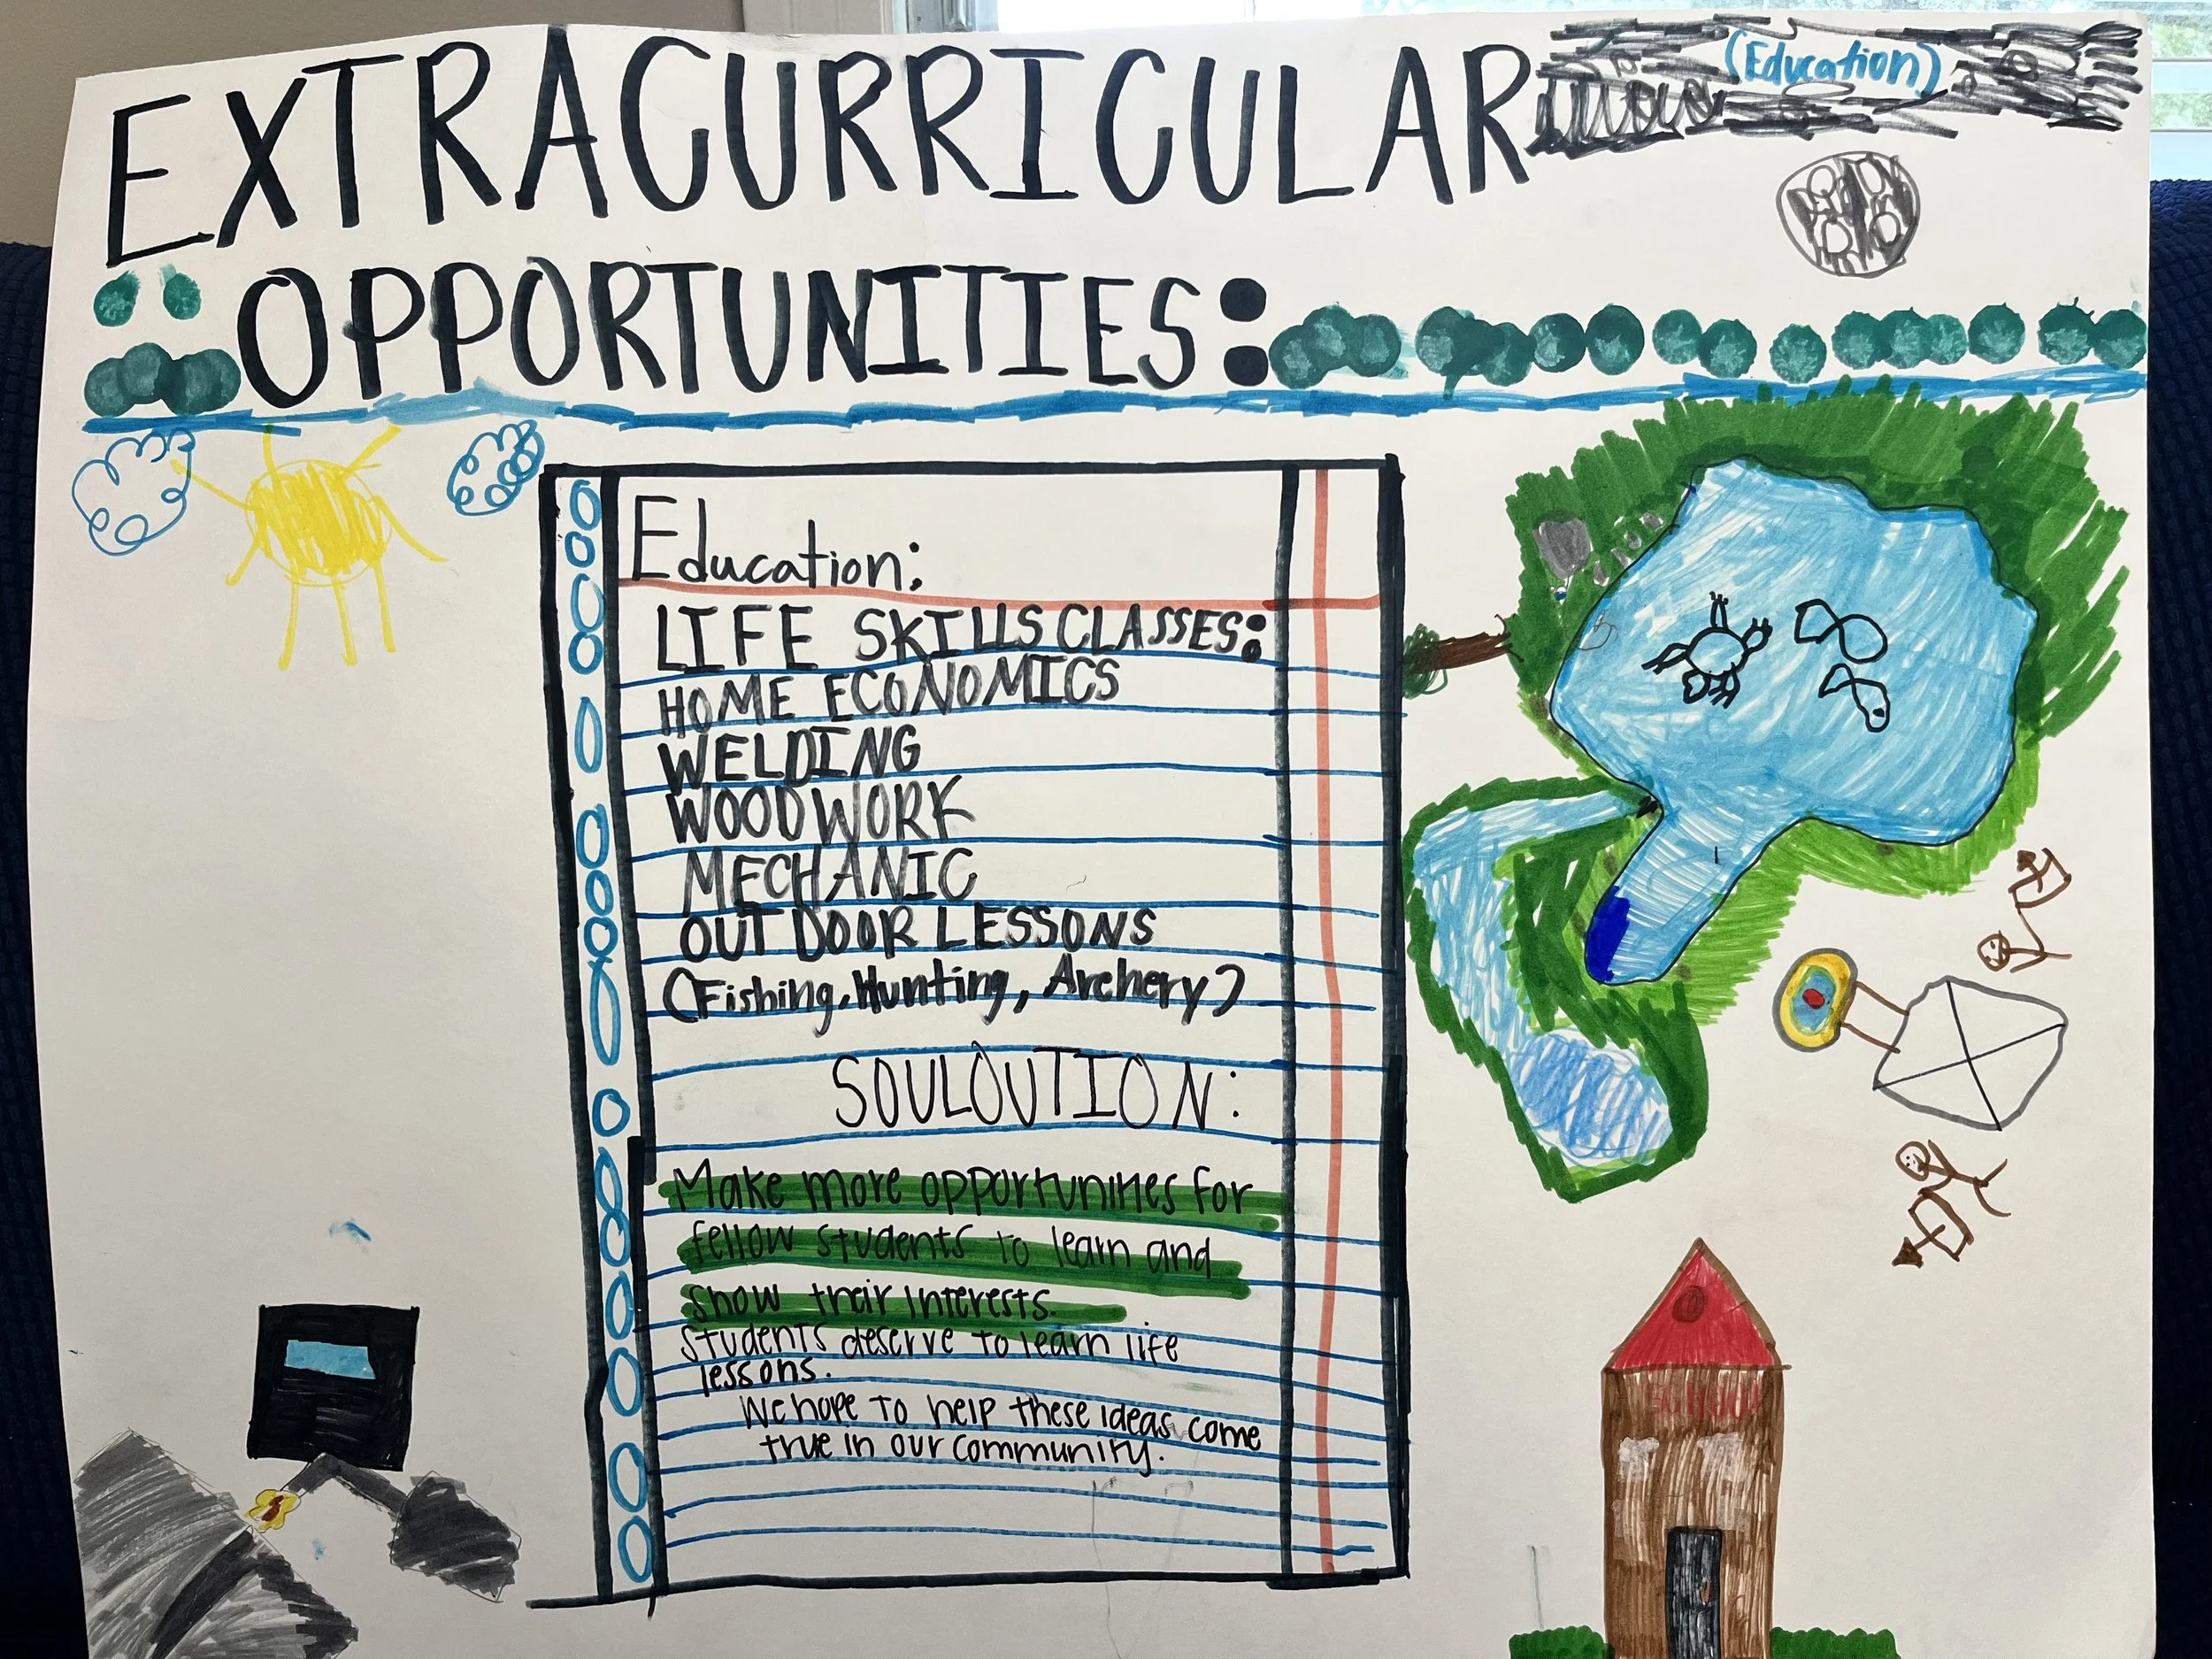 EXTRACURRICULAR
(Education)
OPPORTUNITIES:
Education:
LIFE SKILLS CLASSES:
HOME ECONOMICS
WELDING
WOODWORK
MECHANIC
OUTDOOR LESSONS
(Fishing, Hunting, Archery)
SOULOUTION:
Make more opportunities for
fellow students to learn and
show their interests.
students deserve to learn life
lessons.
We hope to help these ideas come
true in our community.